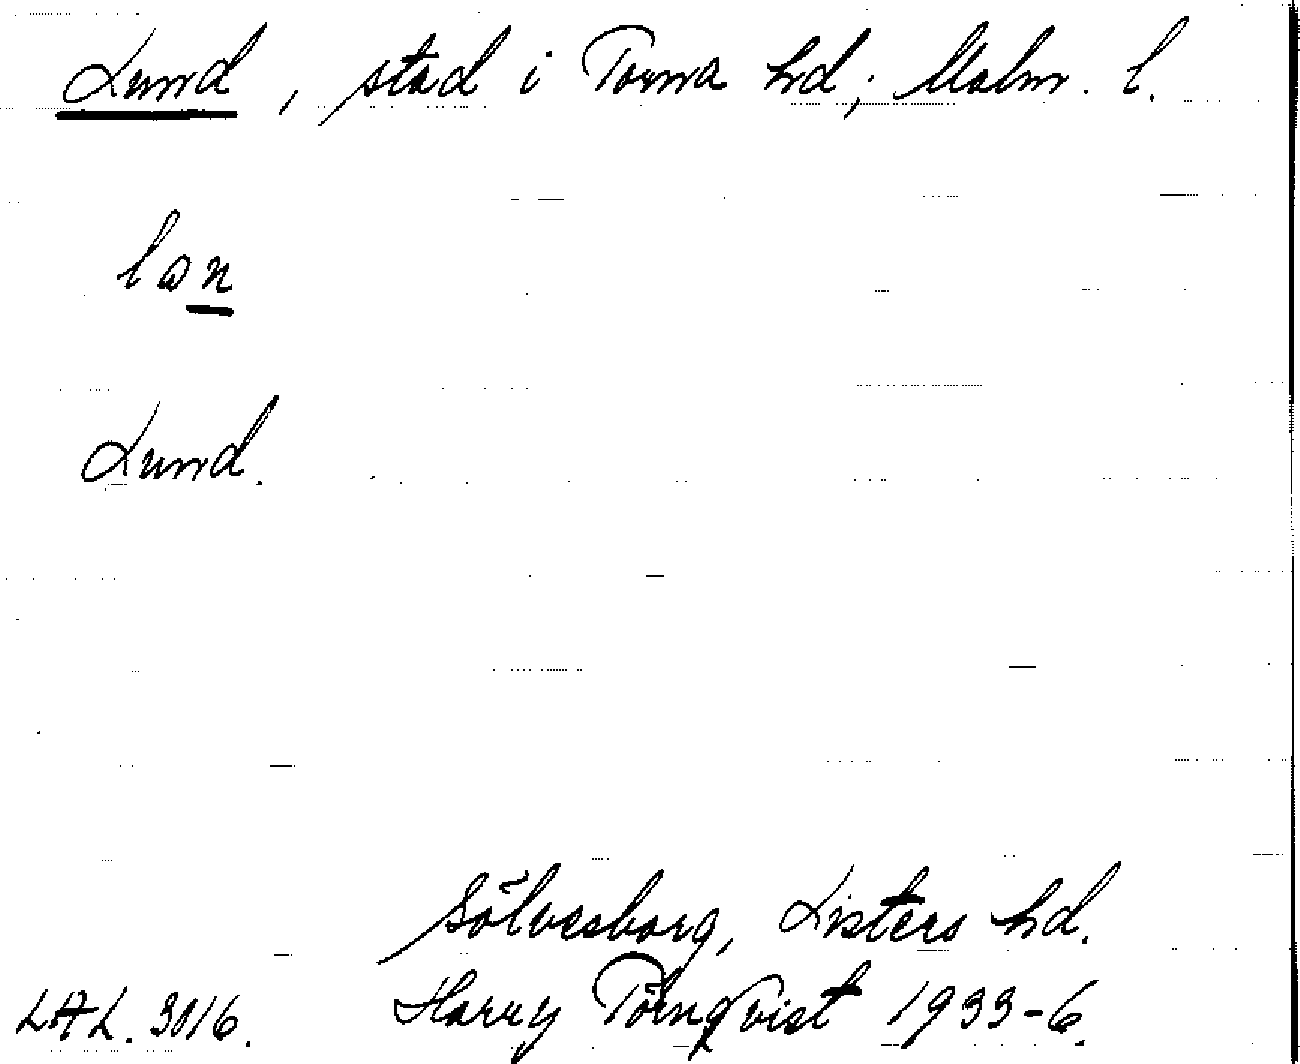 Lund, stad i Torna hd; Malm. l.
lɷn
Lund.
Sölvesborg, Listers hd.
LAL. 3016. Harry Törnqvist 1933-6.